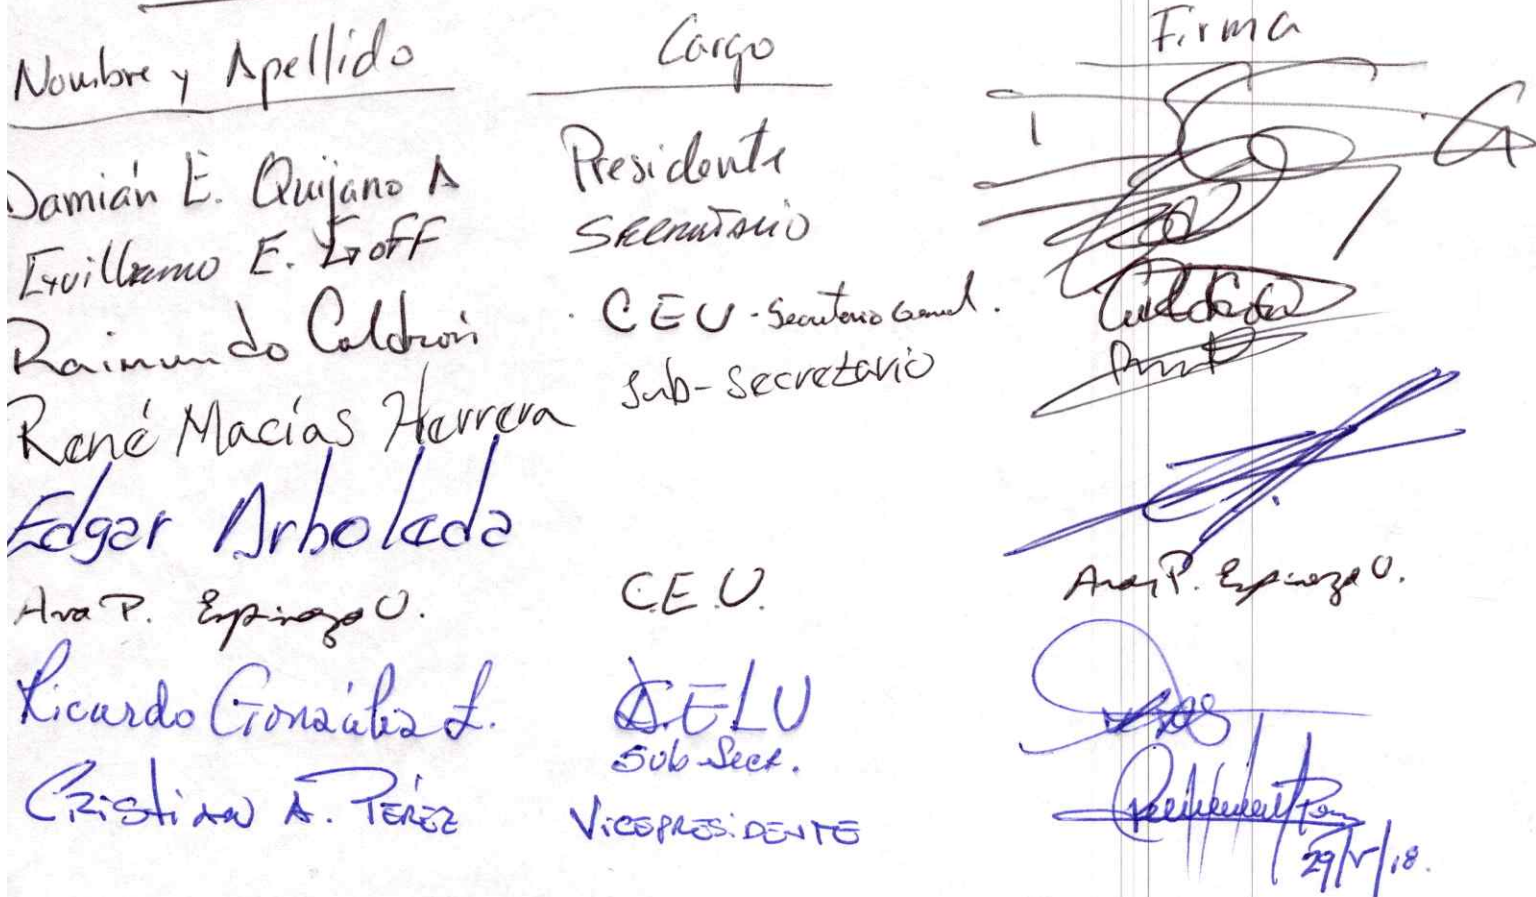 Nombre y Apellido Cargo Firma
Damián E. Quijano A Presidente
Guillermo E. Goff Secretario
Raimundo Calderón CEU - Secretario General. Calderón
René Macías Herrera Sub-Secretario
Edgar Arboleda
Ana P. Espinoza U. C.E.U. Ana P. Espinoza U.
Ricardo González L. C.ELU
Sub Secr.
Cristian A. Pérez VICEPRESIDENTE
29/V/18.